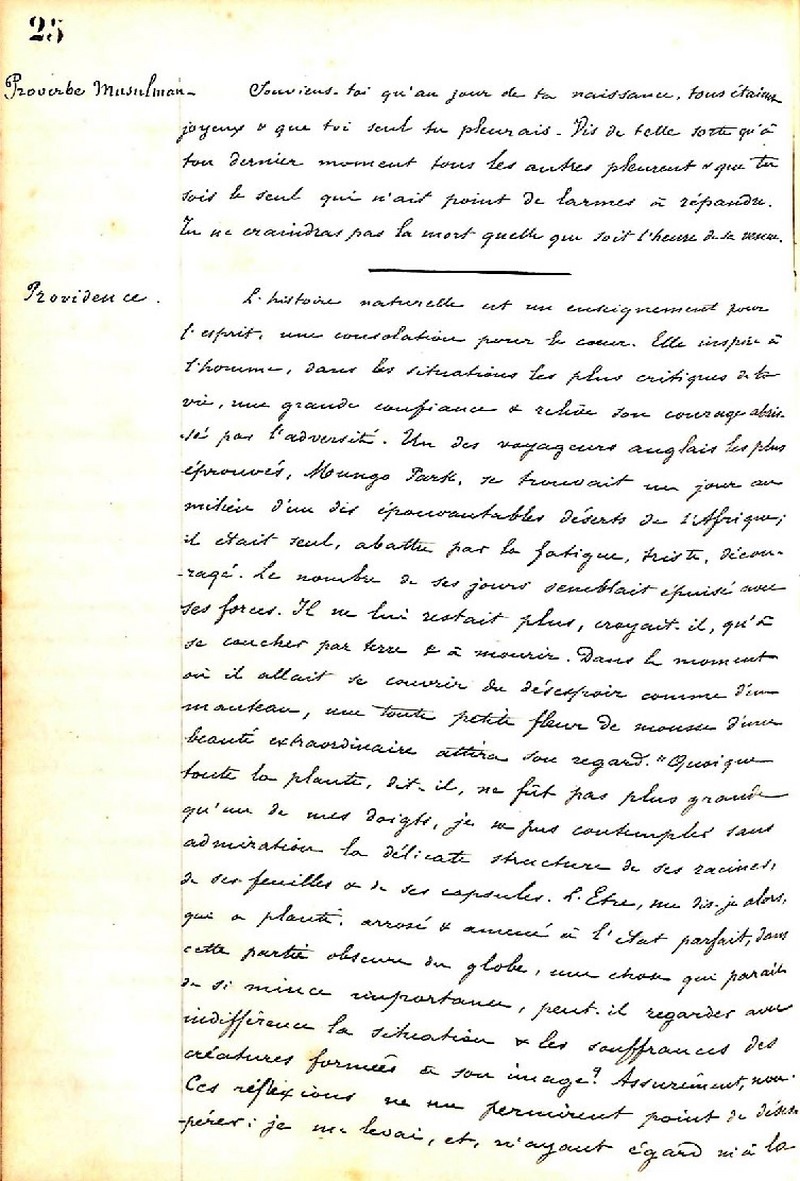 25
Proverbe Musulman - Souviens-toi qu'au jour de ta naissance, tous étaient
joyeux & que toi seul tu pleurais. Vis de telle sorte qu'à
ton dernier moment tous les autres pleurent & que tu
sois le seul qui n'ait point de larmes à répandre.
Tu ne craindras pas la mort quelle que soit l'heure de sa venue.
Providence. L'histoire naturelle est un enseignement pour
l'esprit, une consolation pour le cœur. Elle inspire à
l'homme, dans les situations les plus critiques de la
vie, une grande confiance & relève son courage abais-
-sé par l'adversité. Un des voyageurs anglais les plus
éprouvés, Mungo Park, se trouvait un jour au
milieu d'un des épouvantables déserts de l'Afrique;
il était seul, abattu par la fatigue, triste, décou-
-ragé. Le nombre de ses jours semblait épuisé avec
ses forces. Il ne lui restait plus, croyait-il, qu'à
se coucher par terre & à mourir. Dans le moment
où il allait se couvrir du désespoir comme d'un
manteau, une toute petite fleur de mousse d'une
beauté extraordinaire attira son regard. "Quoique
toute la plante, dit-il, ne fût pas plus grande
qu'un de mes doigts, je ne pus contempler sans
admiration la délicate structure de ses racines,
de ses feuilles & de ses capsules. L'Etre, me dis-je alors,
qui a planté, arrosé & amené à l'état parfait, dans
cette partie obscure du globe, une chose qui paraît
de si mince importance, peut-il regarder avec
indifférence la situation & les souffrances des
créatures formées à son image? Assurément, non.
Ces réflexions ne me permirent point de déses-
-pérer: je me levai, et, n'ayant égard ni à la